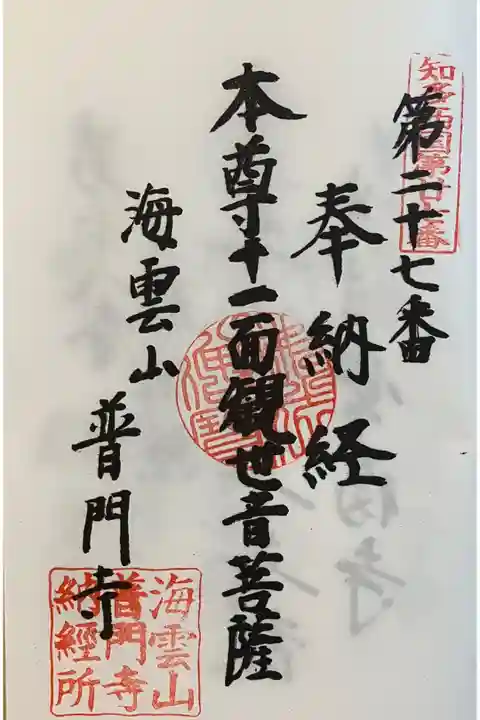 知多四国第廿七番
第二十七番
奉納経
本尊十一面観世音菩薩
海雲山
普門寺
海雲山
普門寺
納経所